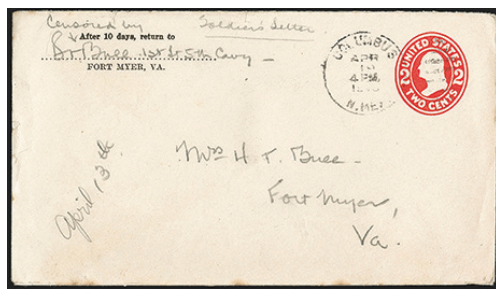 Censored by Soldier's Letter
After 10 days, return to
Bull 1st Lt 5th Cavy
FORT MYER, VA.
COLUMBUS
APR
4 PM
N. MEX.
UNITED STATES
2 2
TWO CENTS
Mrs H. T. Bull
Fort Myer,
Va.
April 13th